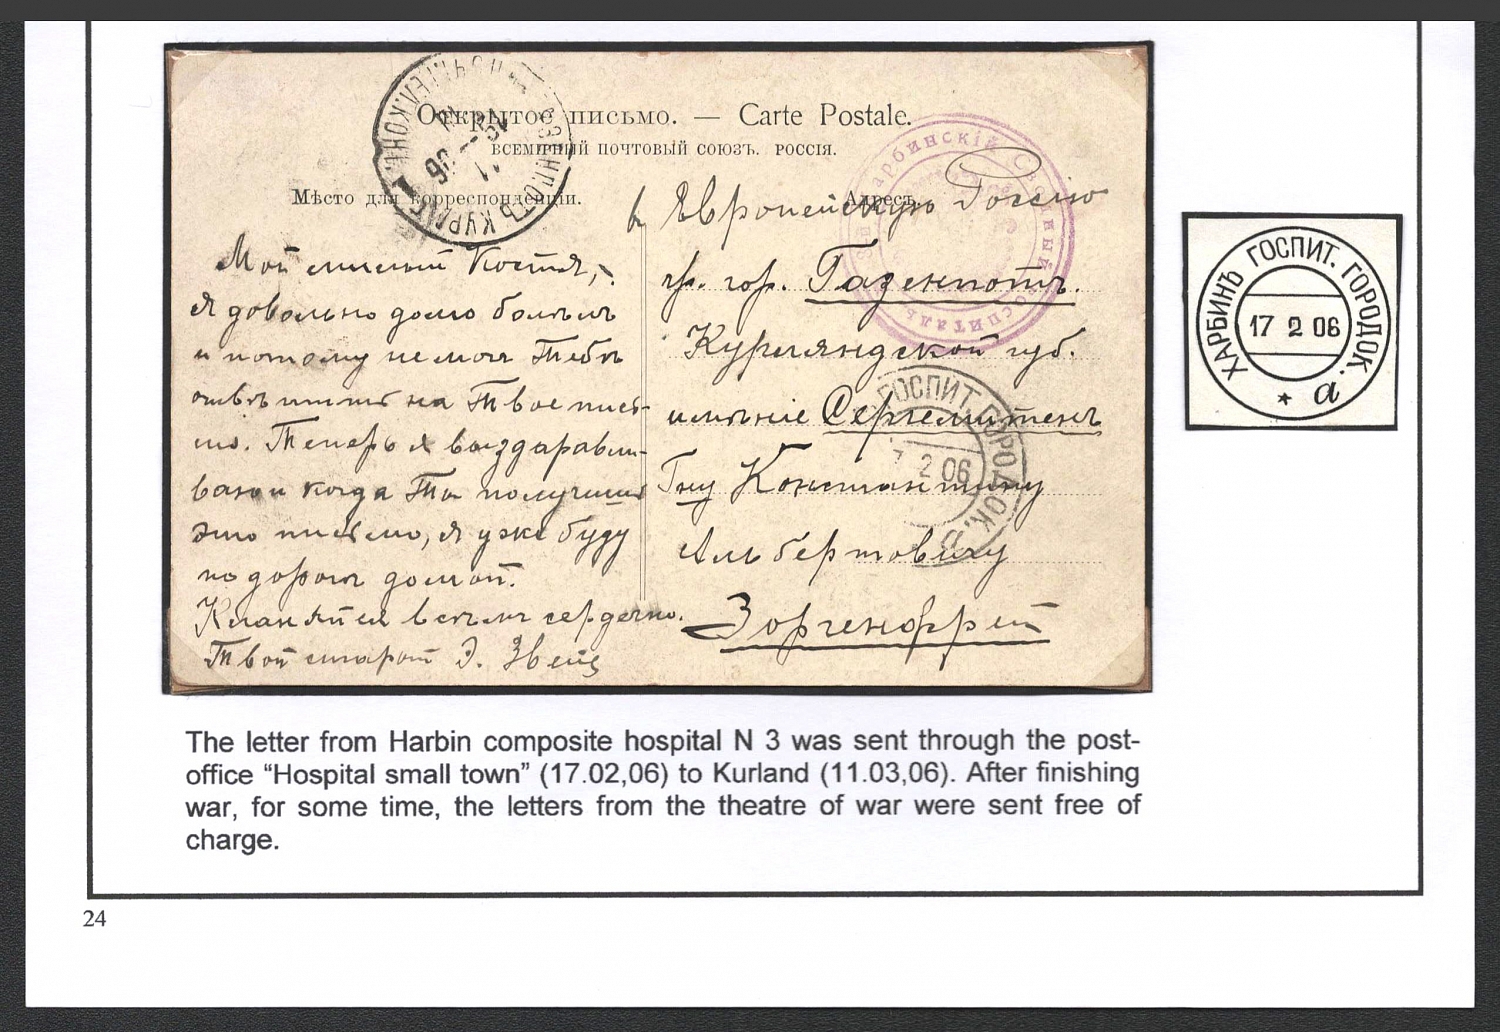 Открытое письмо. — Carte Postale.
ВСЕМІРНЫЙ ПОЧТОВЫЙ СОЮЗЪ. РОССІЯ.
Мѣсто для корреспонденціи.
Адресъ.
Мой милый Костя,
я довольно долго болѣлъ
и потому не могъ Тебѣ
отвѣтить на Твое пись-
мо. Теперь я выздаравли-
ваю и когда Ты получишь
это письмо, я уже буду
по дорогѣ домой.
Кланяйся всѣмъ сердечно.
Твой старой Э.
въ Европейскую Россію
гр. гор. Газенпотъ.
Курляндской губ.
имѣніе
Гну Константину
Альбертовичу
Зоргенфрей
Харбинскій Сводный госпиталь
ГОСПИТ. ГОРОДОК.
2 06
а
ГАЗЕНПОТЪ КУРЛЯ
ХАРБИНЪ ГОСПИТ. ГОРОДОК.
17 2 06
* а
The letter from Harbin composite hospital N 3 was sent through the post-
office “Hospital small town” (17.02,06) to Kurland (11.03,06). After finishing
war, for some time, the letters from the theatre of war were sent free of
charge.
24